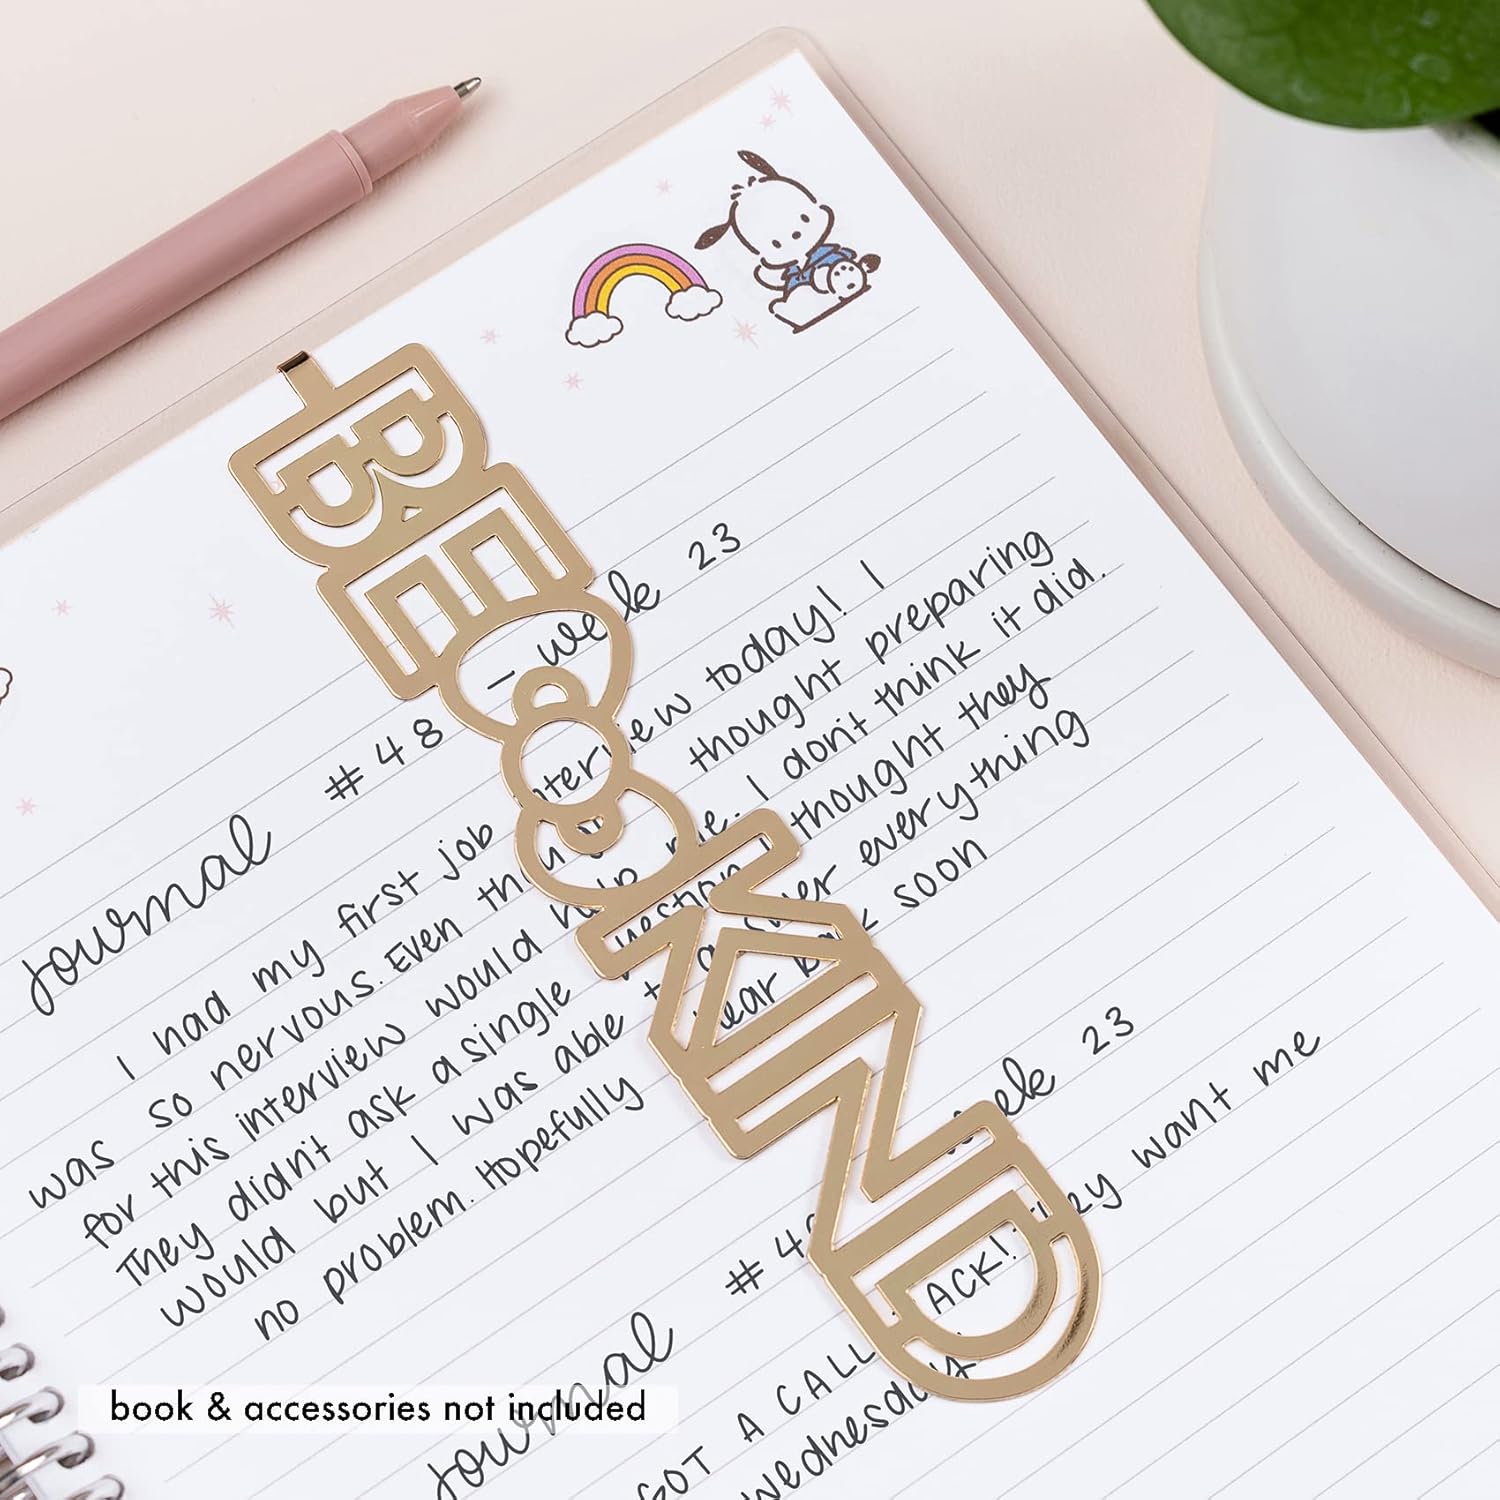 BE KIND
Journal #48 – week 23
I had my first job interview today! I
was so nervous. Even though thought preparing
for this interview would help me. I don't think it did.
They didn't ask a single question I thought they
would but I was able to answer everything
no problem. Hopefully hear back soon
Journal #4 week 23
GOT A CALL BACK! They want me
Wednesday
book & accessories not included